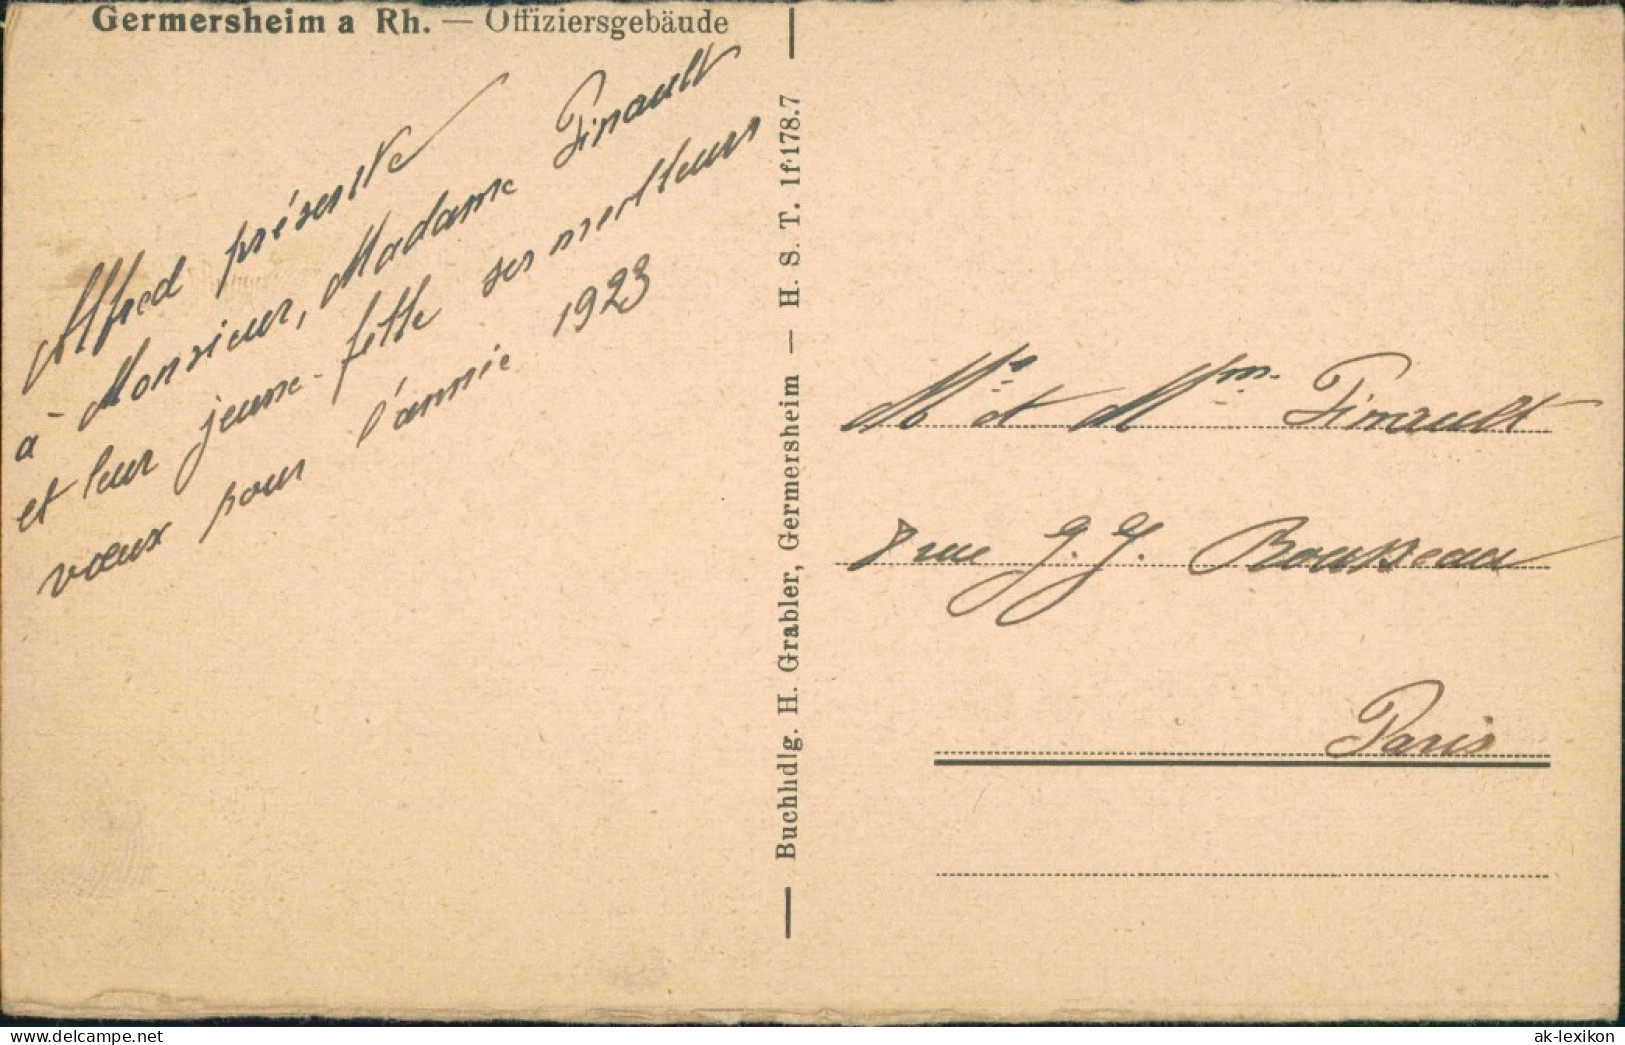 Germersheim a Rh. — Offiziersgebäude
Alfred présente
à Monsieur, Madame Finault
et leur jeune fille ses meilleurs
vœux pour l'année 1923
Buchhdlg. H. Grabler, Germersheim — H. S. T. 1f·178.7
Mr et Mme Finault
8 rue J. J. Rousseau
Paris
www.delcampe.net
ak-lexikon